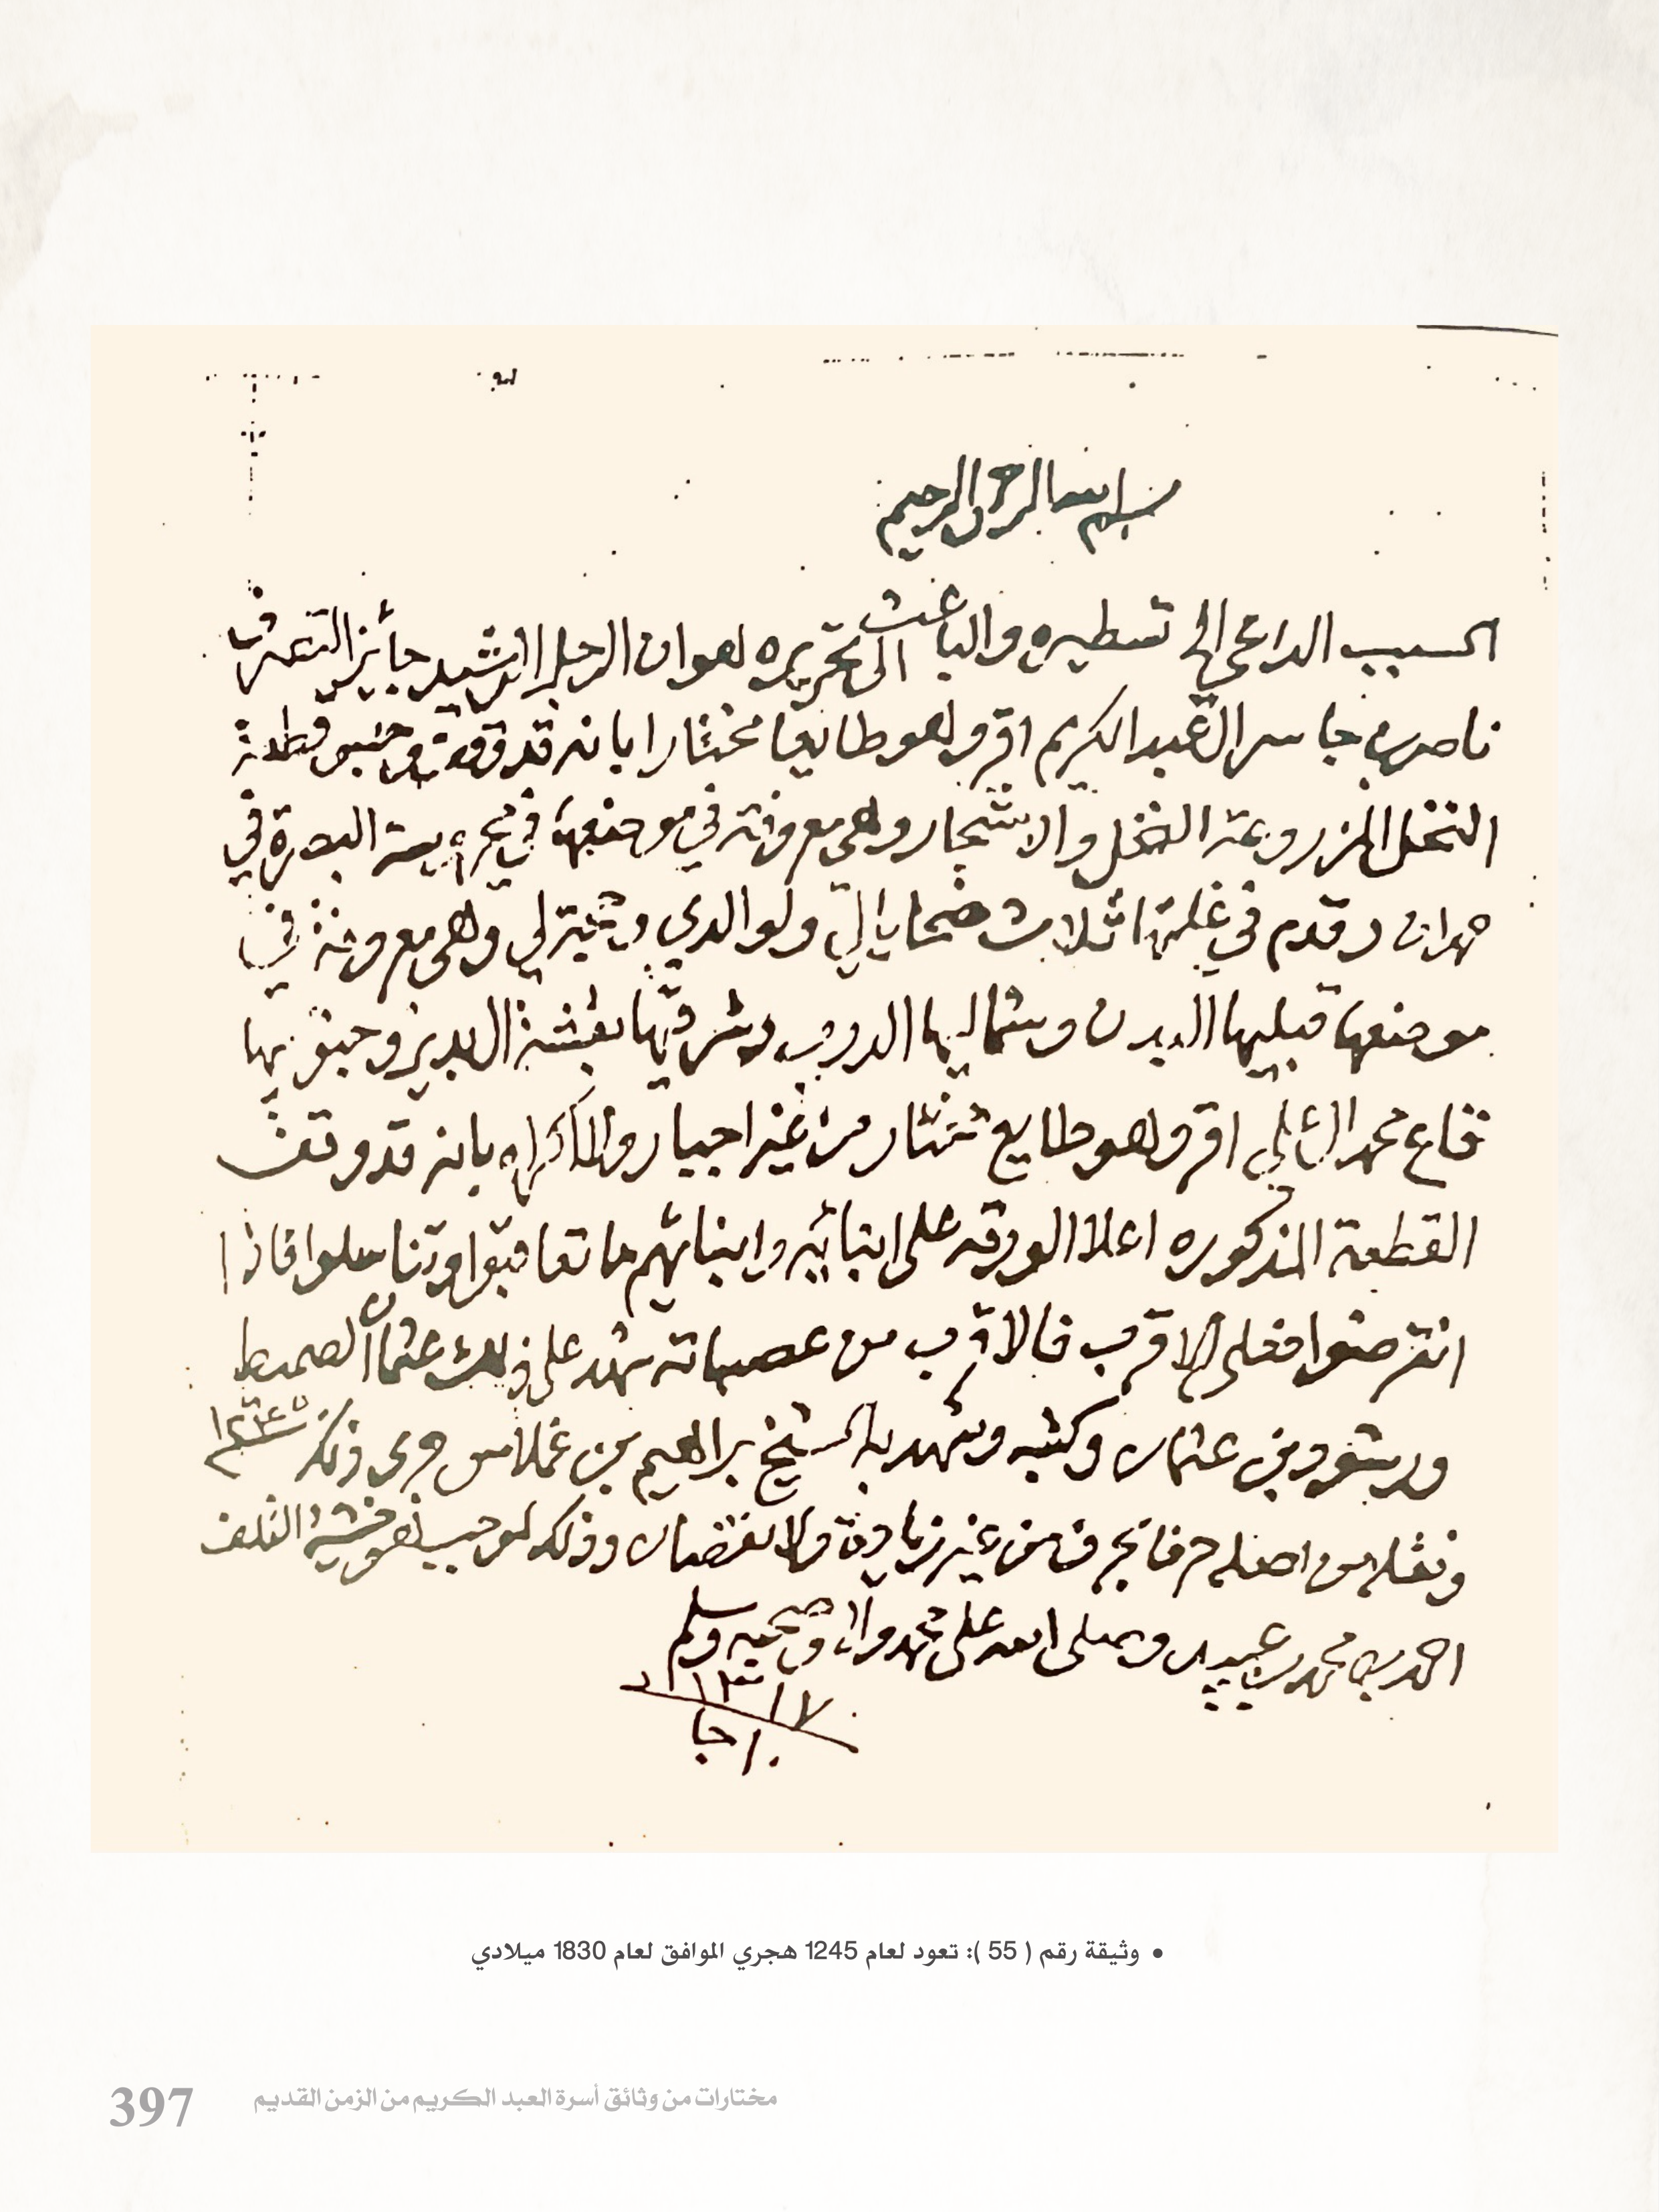 بسم الله الرحمن الرحيم
السبب الداعي الى تسطيره والباعث الى تحريره لهو ان الرجل الرشيد جائز التصرف
ناصر بن جاسر العبد الكريم اقر وهو طايعا مختارا بانه قد وقف وحبس قطعة
النخل المزروعة النخل والاشجار وهي معروفة في موضعها في البصرة في
مهران وقدم في غلتها ثلاث ضحايا لي ولوالدي ولي وهي معروفة في
موضعها قبليها البدن وشماليها الدرب وشرقيها ال بدير وجنوبيها
محمد اقر وهو طايع مختار من غير اجبار ولا اكراه بانه قد وقف
القطعة المذكوره اعلا الورقه على ابنائه وابنائهم ما تعاقبوا وتناسلوا فاذا
انقرضوا فعلى الاقرب فالاقرب من عصباته شهد على ذلك عثمان الصميط
بن عثمان وكتبه وشهد به الشيخ براهيم بن غملاس جرى ذلك ١٢٤٥
ونقله من اصله حرفا بحرف من غير زيادة ولا نقصان وذلك لموجب
احمد بن محمد بن عبيد وصلى الله على محمد واله وصحبه وسلم
جا
• وثيقة رقم ( 55 ): تعود لعام 1245 هجري الموافق لعام 1830 ميلادي
مختارات من وثائق أسرة العبد الكريم من الزمن القديم 397